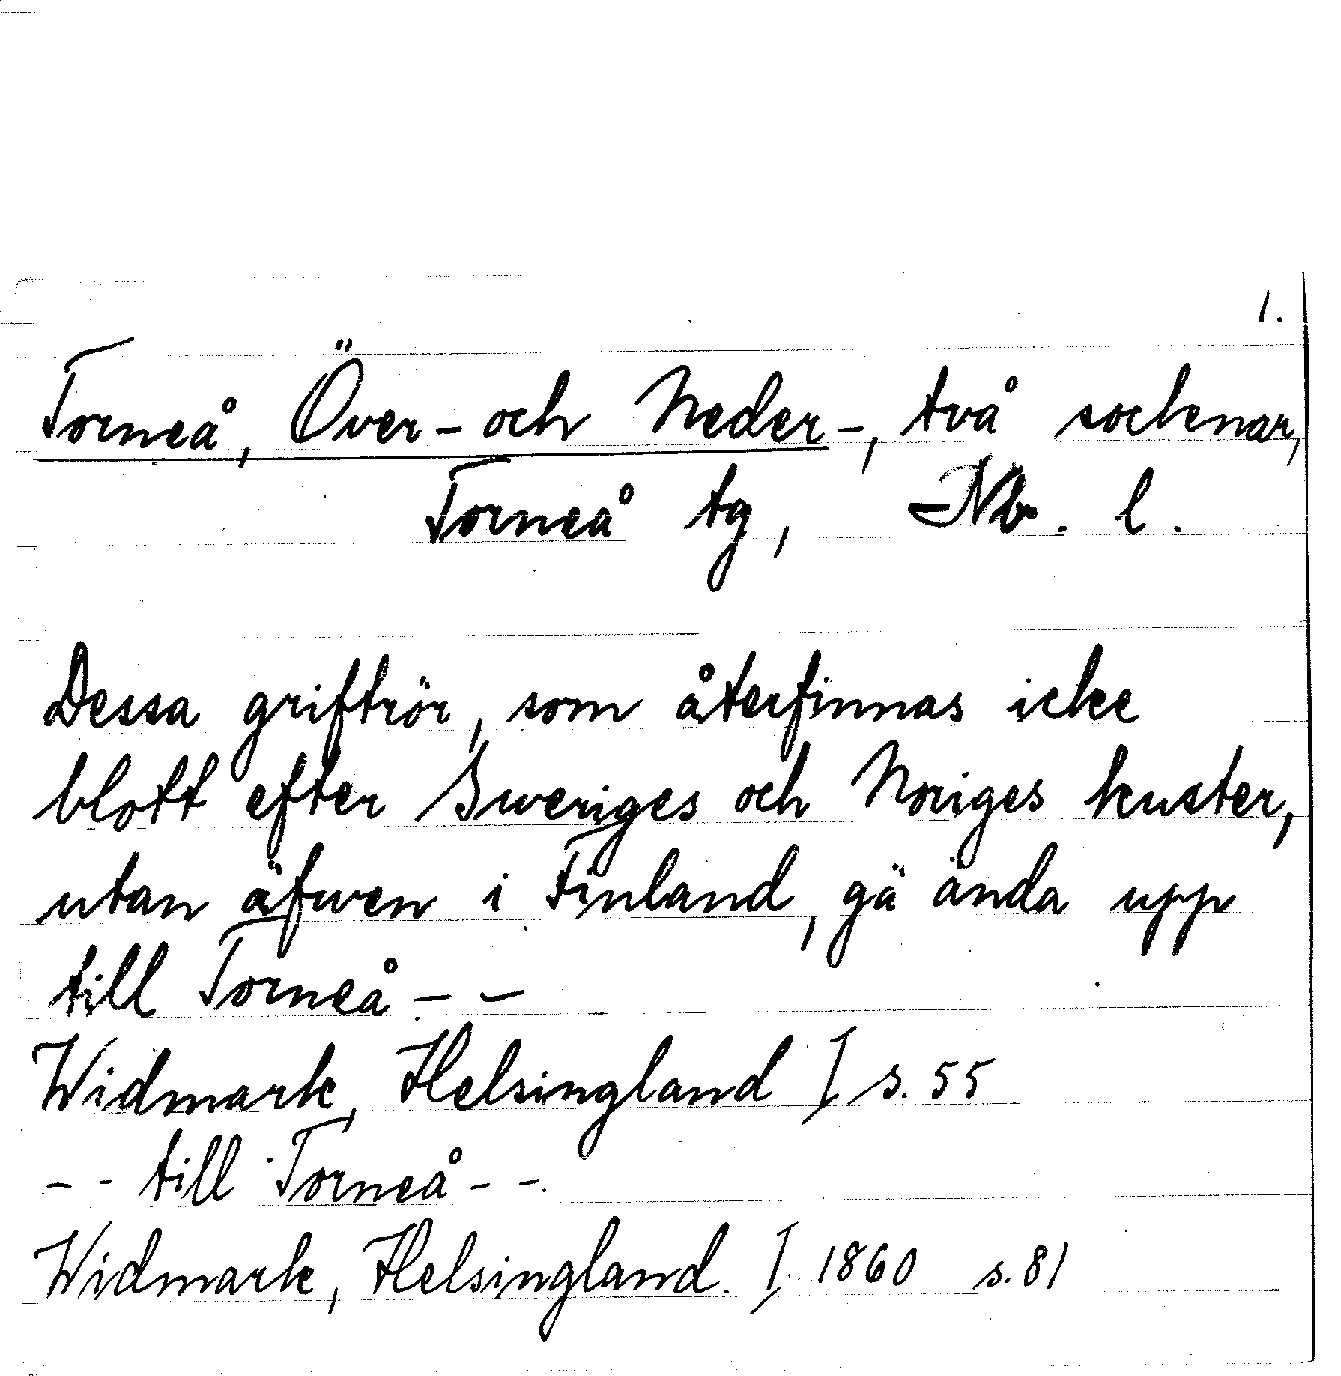 1.
Torneå, Över- och Neder-, två socknar,
Torneå tg, Nb. l.
Dessa griftrör, som återfinnas icke
blott efter Sweriges och Noriges kuster,
utan äfwen i Finland, gå ända upp
till Torneå - -
Widmark, Helsingland I s. 55
- - till Torneå - -.
Widmark, Helsingland. I 1860 s. 81